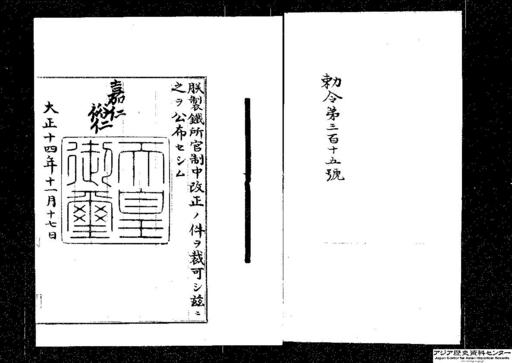 勅令第三百十五號
朕製鐵所官制中改正ノ件ヲ裁可シ玆ニ
之ヲ公布セシム
嘉仁
裕仁
天皇
御璽
大正十四年十一月十七日
アジア歴史資料センター
Japan Center for Asian Historical Records